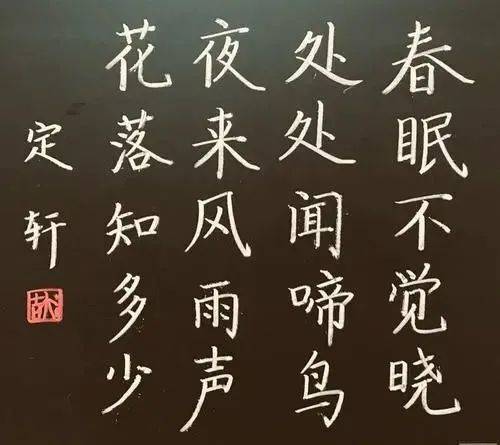 春眠不觉晓
处处闻啼鸟
夜来风雨声
花落知多少
定轩